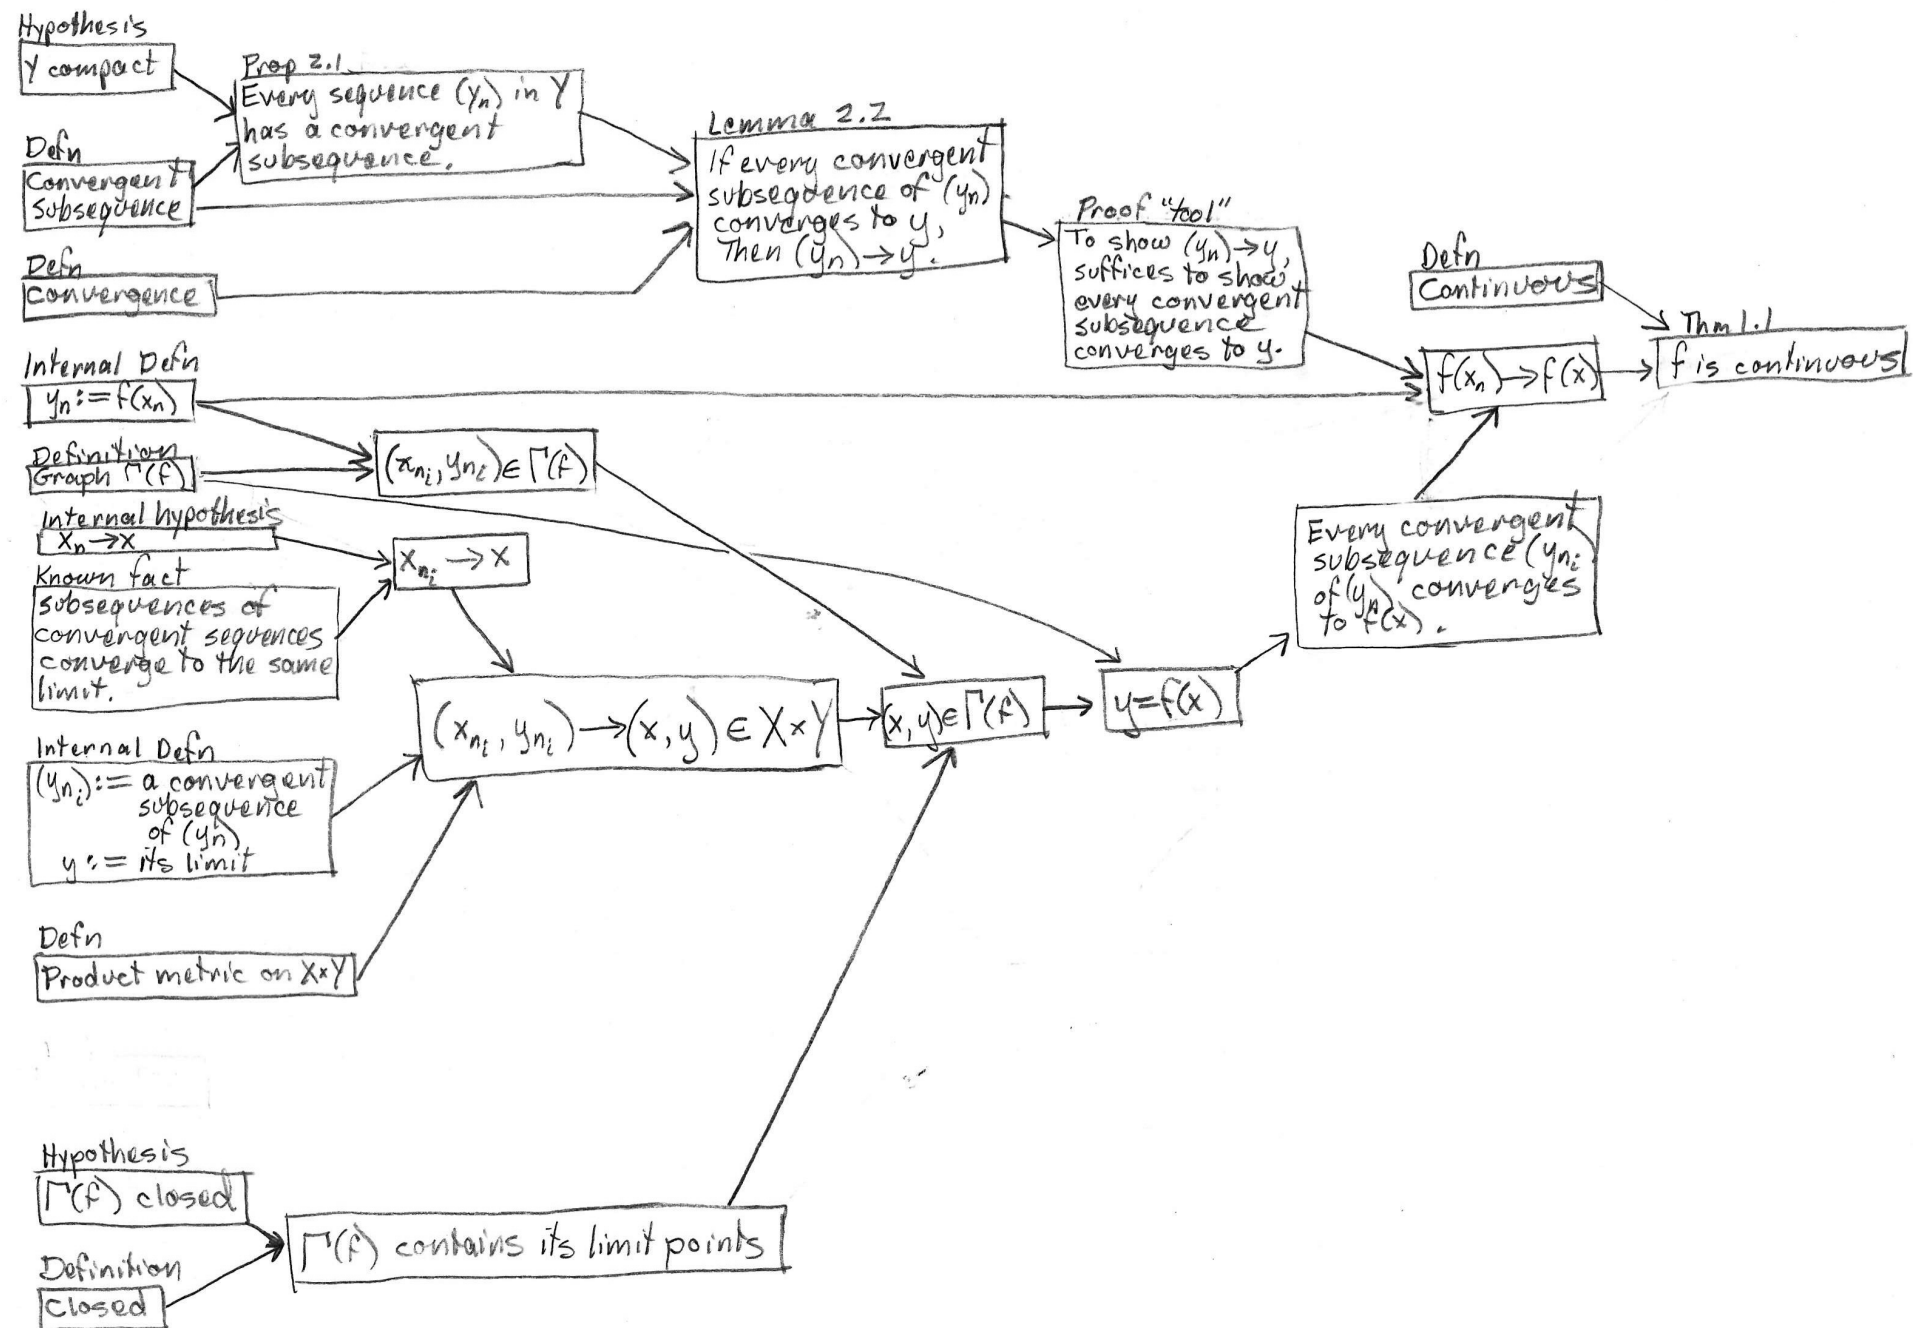 Hypothesis
Y compact
Prop 2.1
Every sequence (yₙ) in Y
has a convergent
subsequence.
Defn
Convergent
subsequence
Defn
Convergence
Lemma 2.2
If every convergent
subsequence of (yₙ)
converges to y,
Then (yₙ)→y.
Proof "tool"
To show (yₙ)→y,
suffices to show
every convergent
subsequence
converges to y.
Defn
Continuous
Thm 1.1
f is continuous
f(xₙ)→f(x)
Internal Defn
yₙ:=f(xₙ)
Definition
Graph Γ(f)
(x_{n_i}, y_{n_i})∈Γ(f)
Internal hypothesis
xₙ→x
Known fact
subsequences of
convergent sequences
converge to the same
limit.
x_{n_i}→x
Every convergent
subsequence (y_{n_i}
of (yₙ) converges
to f(x).
(x_{n_i}, y_{n_i})→(x,y)∈X×Y
(x,y)∈Γ(f)
y=f(x)
Internal Defn
(y_{n_i}):= a convergent
subsequence
of (yₙ)
y:= its limit
Defn
Product metric on X×Y
Hypothesis
Γ(f) closed
Definition
closed
Γ(f) contains its limit points